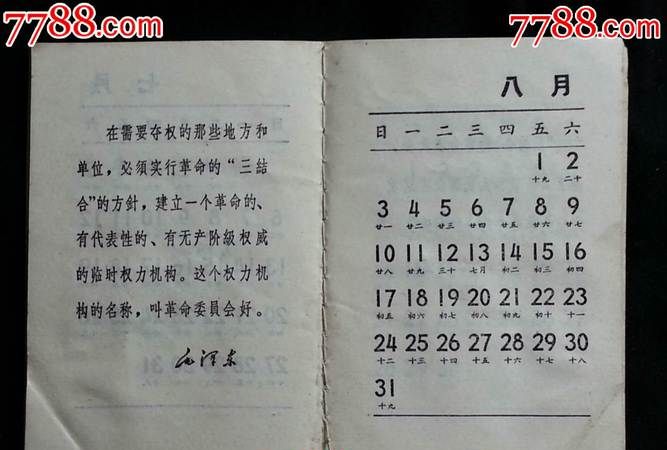 7788.com
7788.com
七月
在需要夺权的那些地方和
单位，必须实行革命的“三结
合”的方針，建立一个革命的、
有代表性的、有无产阶級权威
的临时权力机构。这个权力机
构的名称，叫革命委員会好。
毛泽东
八月
日 一 二 三 四 五 六
1 2
十九 二十
3 4 5 6 7 8 9
廿一 廿二 廿三 廿四 廿五 廿六 廿七
10 11 12 13 14 15 16
廿八 廿九 三十 七月 初二 初三 初四
17 18 19 20 21 22 23
初五 初六 初七 初八 初九 初十 十一
24 25 26 27 28 29 30
十二 十三 十四 十五 十六 十七 十八
31
十九